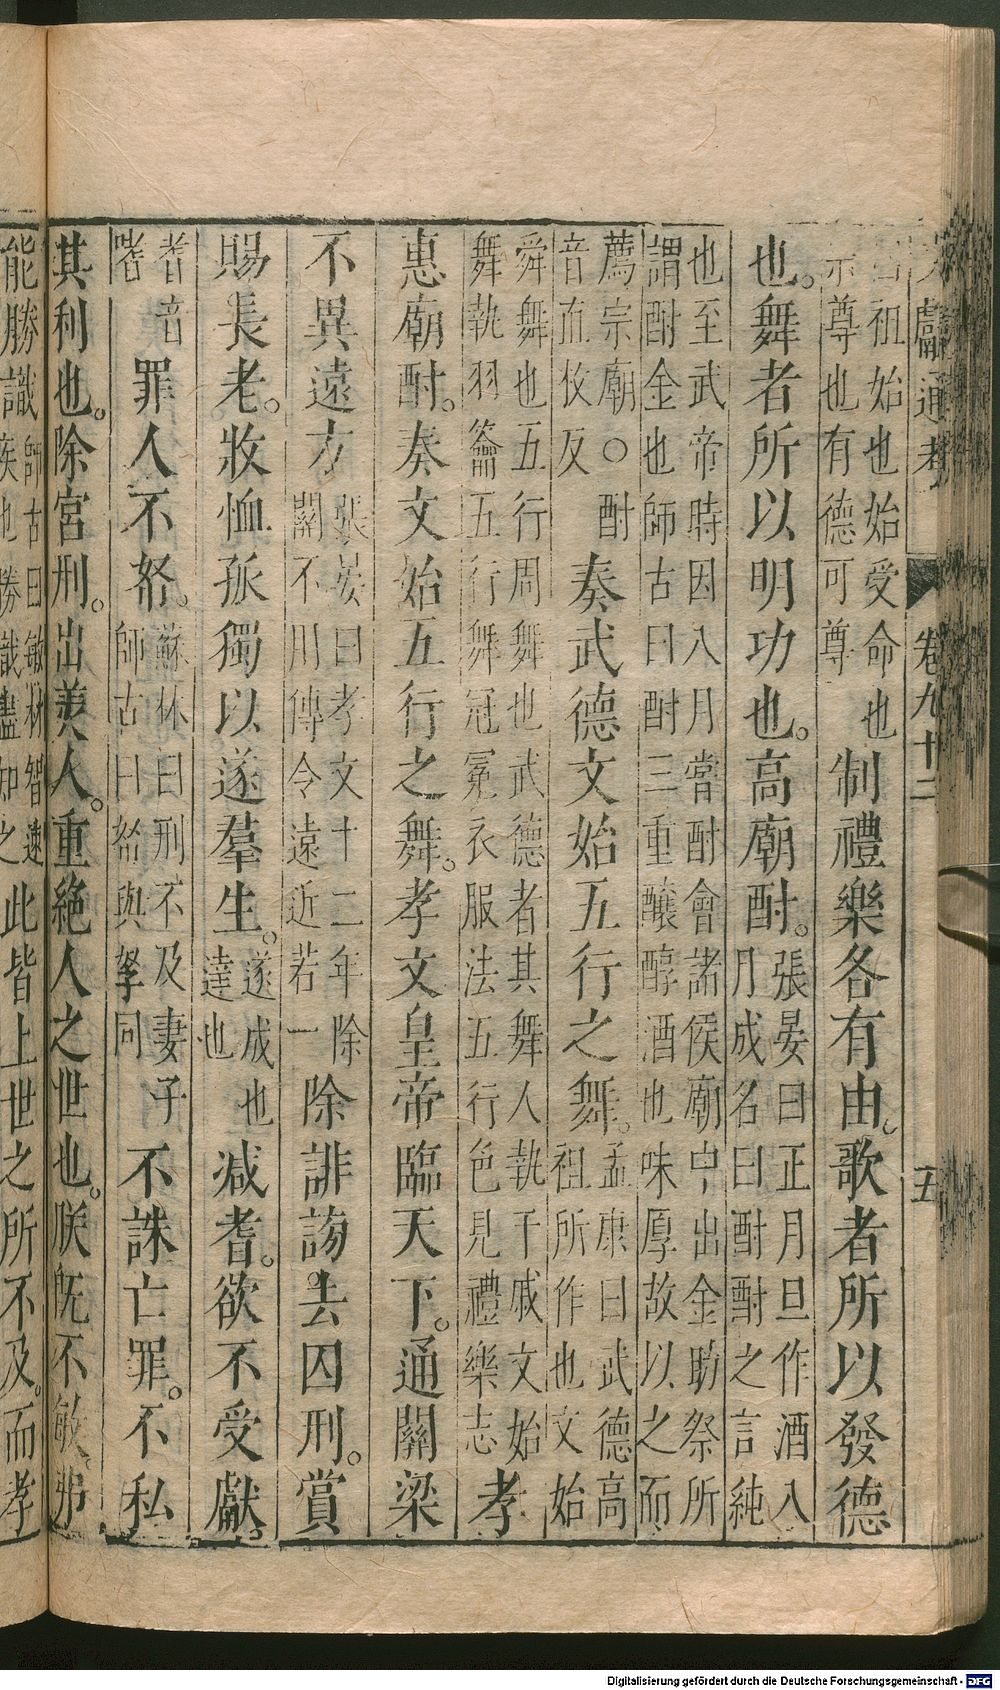 文獻通考　卷九十二　五
曰祖始也始受命也
宗尊也有德可尊
制禮樂各有由。歌者所以發德
也。舞者所以明功也。高廟酎。
張晏曰正月旦作酒八
月成名曰酎酎之言純
也至武帝時因八月嘗酎會諸侯廟中出金助祭所
謂酎金也師古曰酎三重釀醇酒也味厚故以之而
薦宗廟○酎
音直攸反
奏武德文始五行之舞。
孟康曰武德高
祖所作也文始
舜舞也五行周舞也武德者其舞人執干戚文始
舞執羽籥五行舞冠冕衣服法五行色見禮樂志
孝
惠廟酎。奏文始五行之舞。孝文皇帝臨天下。通關梁
不異遠方
張晏曰孝文十二年除
關不用傳令遠近若一
除誹謗。去囚刑。賞
賜長老。收恤孤獨以遂羣生。
遂成也
達也
減耆。欲不受獻。
耆音
嗜
罪人不帑。
蘇林曰刑不及妻子
師古曰帑與孥同
不誅亡罪。不私
其利也。除宮刑。出美人。重絕人之世也。朕既不敏。弗
能勝識
師古曰敏材智速
疾也勝識盡知之
此皆上世之所不及。而孝
Digitalisierung gefördert durch die Deutsche Forschungsgemeinschaft - DFG